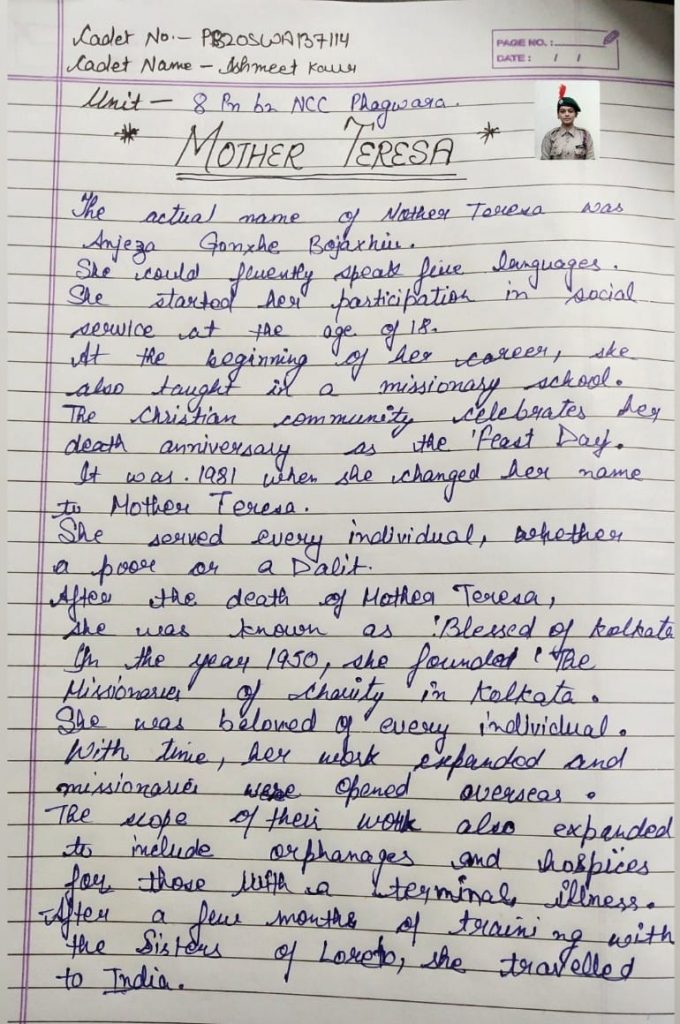 Cadet No.- PB20SWA137114
Cadet Name - Ishmeet Kaur
PAGE NO.:
DATE: / /
Unit - 8 Pb bn NCC Phagwara.
* MOTHER TERESA *
The actual name of Mother Teresa was
Anjeza Gonxhe Bojaxhiu.
She could fluently speak five languages.
She started her participation in social
service at the age of 18.
At the beginning of her career, she
also taught in a missionary school.
The Christian community celebrates her
death anniversary as the 'Feast Day.
It was .1981 when she changed her name
to Mother Teresa.
She served every individual, whether
a poor or a Dalit.
After the death of Mother Teresa,
she was known as 'Blessed of Kolkata
In the year 1950, she founded 'The
Missionaries of Charity in Kolkata.
She was beloved of every individual.
With time, her work expanded and
missionaries were opened overseas.
The scope of their work also expanded
to include orphanages and hospices
for those with a terminal illness.
After a few months of traini ng with
the Sisters of Loreto, she travelled
to India.